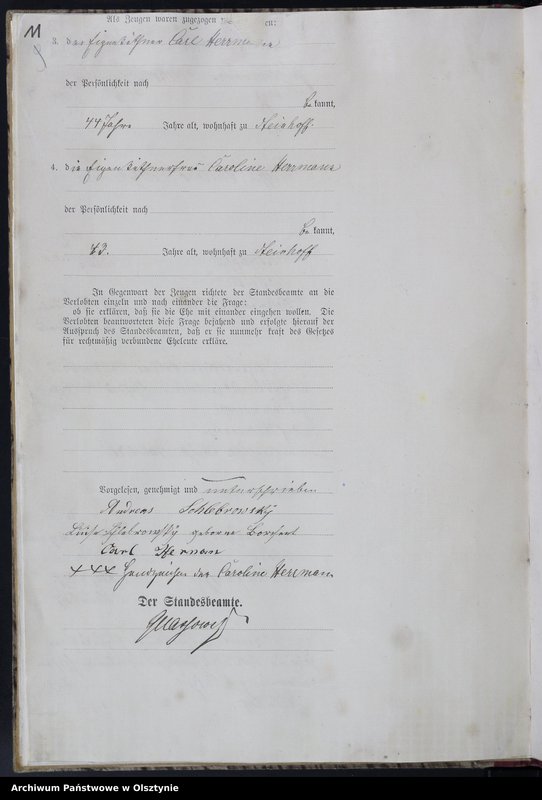 11
Als Zeugen waren zugezogen und er
en:
3. der Eigenkäthner Carl Herrmann
der Persönlichkeit nach
be kannt,
44 Jahre Jahre alt, wohnhaft zu Steinhoff.
4. die Eigenkäthnerfrau Caroline Herrmann
der Persönlichkeit nach
be kannt,
43. Jahre alt, wohnhaft zu Steinhoff
In Gegenwart der Zeugen richtete der Standesbeamte an die
Verlobten einzeln und nach einander die Frage:
ob sie erklären, daß sie die Ehe mit einander eingehen wollen. Die
Verlobten beantworteten diese Frage bejahend und erfolgte hierauf der
Ausspruch des Standesbeamten, daß er sie nunmehr kraft des Gesetzes
für rechtmäßig verbundene Eheleute erkläre.
Vorgelesen, genehmigt und unterschrieben
Andreas Schlebrowsky
Luise Schlebrowsky geborne Borchert
Carl Herman
+++ Handzeichen der Caroline Herrmann
Der Standesbeamte.
Archiwum Państwowe w Olsztynie